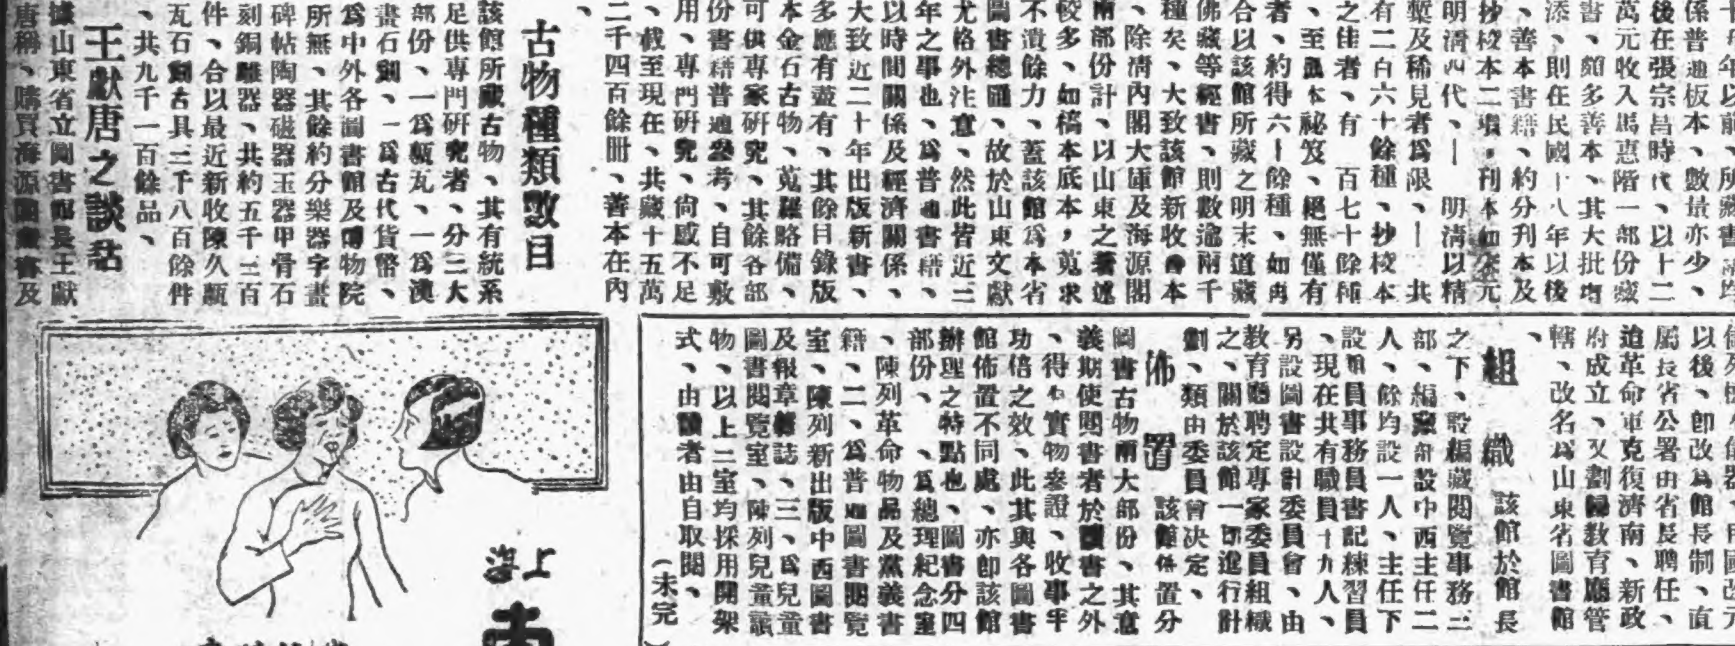 係普通板本、數量亦少、
後在張宗昌時代、以十二
萬元收入馬惠階一部份藏
書、頗多善本、其大批增
添、則在民國十八年以後
、善本書籍、約分刊本及
抄校本二項，刊本如宋元
明清四代、—明清以精
槧及稀見者爲限、—共
有二百六十餘種、抄校本
之佳者、有一百七十餘種
、至孤本祕笈、絕無僅有
者、約得六十餘種、如再
合以該館所藏之明末道藏
佛藏等經書、則數逾兩千
種矣、大致該館新收善本
、除清內閣大庫及海源閣
兩部份計、以山東之著述
較多、如稿本底本，蒐求
不遺餘力、蓋該館爲本省
圖書總匯、故於山東文獻
尤格外注意、然此皆近三
年之事也、爲普通書籍、
以時間關係及經濟關係、
大致近二十年出版新書、
多應有盡有、其餘目錄版
本金石古物、蒐羅略備、
可供專家研究、其餘各部
份書籍普通參考、自可敷
用、專門研究、尙感不足
、截至現在、共藏十五萬
二千四百餘冊、善本在內
、
古物種類數目
該館所藏古物、其有統系
足供專門研究者、分三大
部份、一爲甎瓦、一爲漢
畫石刻、一爲古代貨幣、
爲中外各圖書館及博物院
所無、其餘約分樂器字畫
碑帖陶器磁器玉器甲骨石
刻銅雕器、共約五千三百
件、合以最近新收陳久甎
瓦石刻古具三千八百餘件
、共九千一百餘品、
王獻唐之談話
據山東省立圖書館長王獻
唐稱、購買海源閣書及
以後、卽改爲館長制、直
屬長省公署由省長聘任、
迨革命軍克復濟南、新政
府成立、又劃歸教育廳管
轄、改名爲山東省圖書館
、
組織　該館於館長
之下、設編藏閱覽事務三
部、編藏部設中西主任二
人、餘均設一人、主任下
設館員事務員書記練習員
、現在共有職員十九人、
另設圖書設計委員會、由
教育廳聘定專家委員組織
之、關於該館一切進行計
劃、類由委員會决定、
佈置　該館佈置分
圖書古物兩大部份、其意
義期使閱書者於讀書之外
、得由實物參證、收事半
功倍之效、此其與各圖書
館佈置不同處、亦卽該館
辦理之特點也、圖書分四
部份、一、爲總理紀念室
、陳列革命物品及黨義書
籍、二、爲普通圖書閱覽
室、陳列新出版中西圖書
及報章雜誌、三、爲兒童
圖書閱覽室、陳列兒童讀
物、以上三室均採用開架
式、由讀者由自取閱、
（未完）
上海